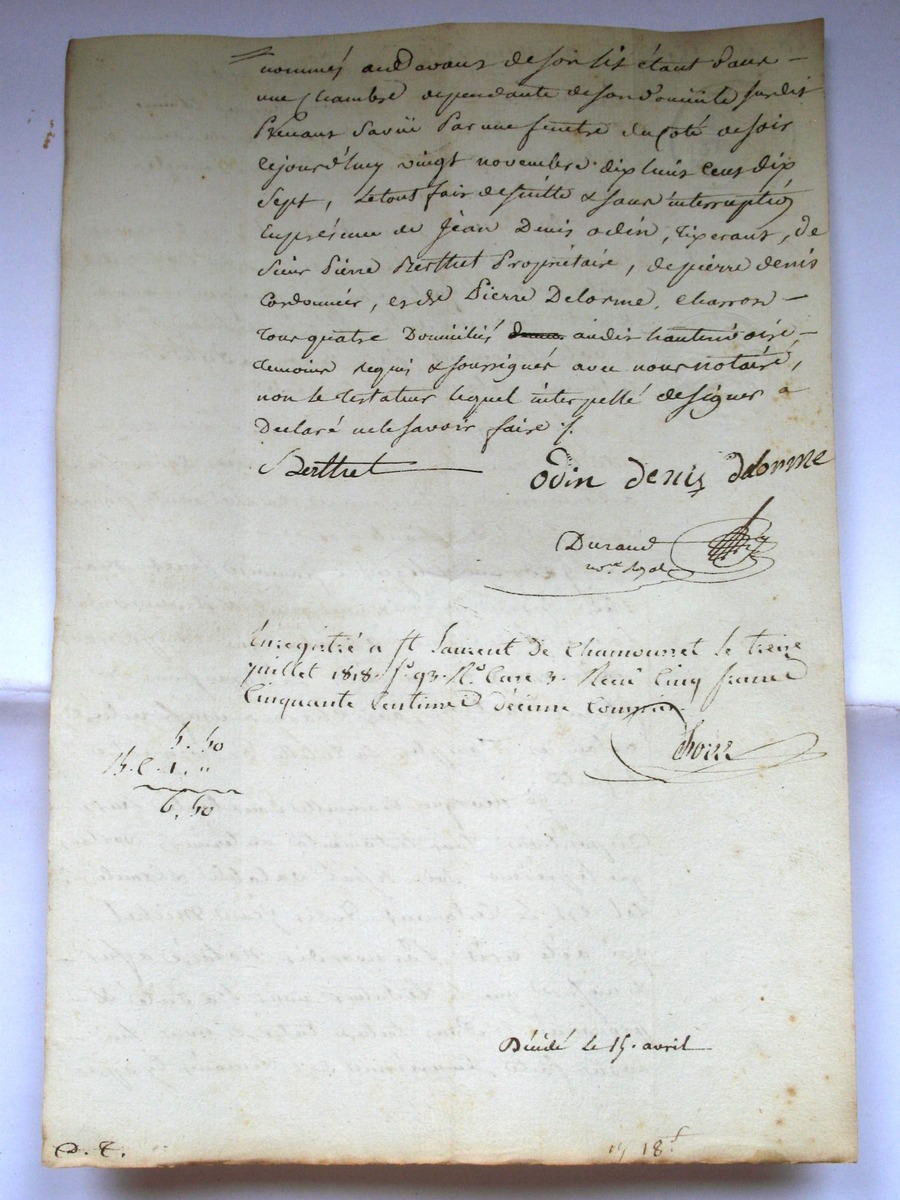 nommés audevant de son lit étant dans
une chambre dependante de son domicile susdit
Prenant Par une fenetre du coté de soir
cejourd'huy vingt novembre dix huit cent dix
Sept, le tout fait de suitte & sans interruption
En présence de Jean Denis odin, tixerant, de
sieur Pierre Berthet Propriétaire, de pierre denis
Cordonnier, et de Pierre Delorme, charron
tous quatre Domiciliés audit hauterivoire,
temoins requis & soussignés avec nous notaire,
non le testateur lequel interpellé de signer a
Declaré ne le savoir faire /.
Berthet
odin denis delorme
Durand
nore Royal
Enregistré a St Laurent de Chamousset le treize
juillet 1818. fo 93. Ro Case 3. Recu Cinq francs
Cinquante Centimes décime compris.
5. 50
1. "
6. 50
Décédé le 15. avril
D. T.
18f